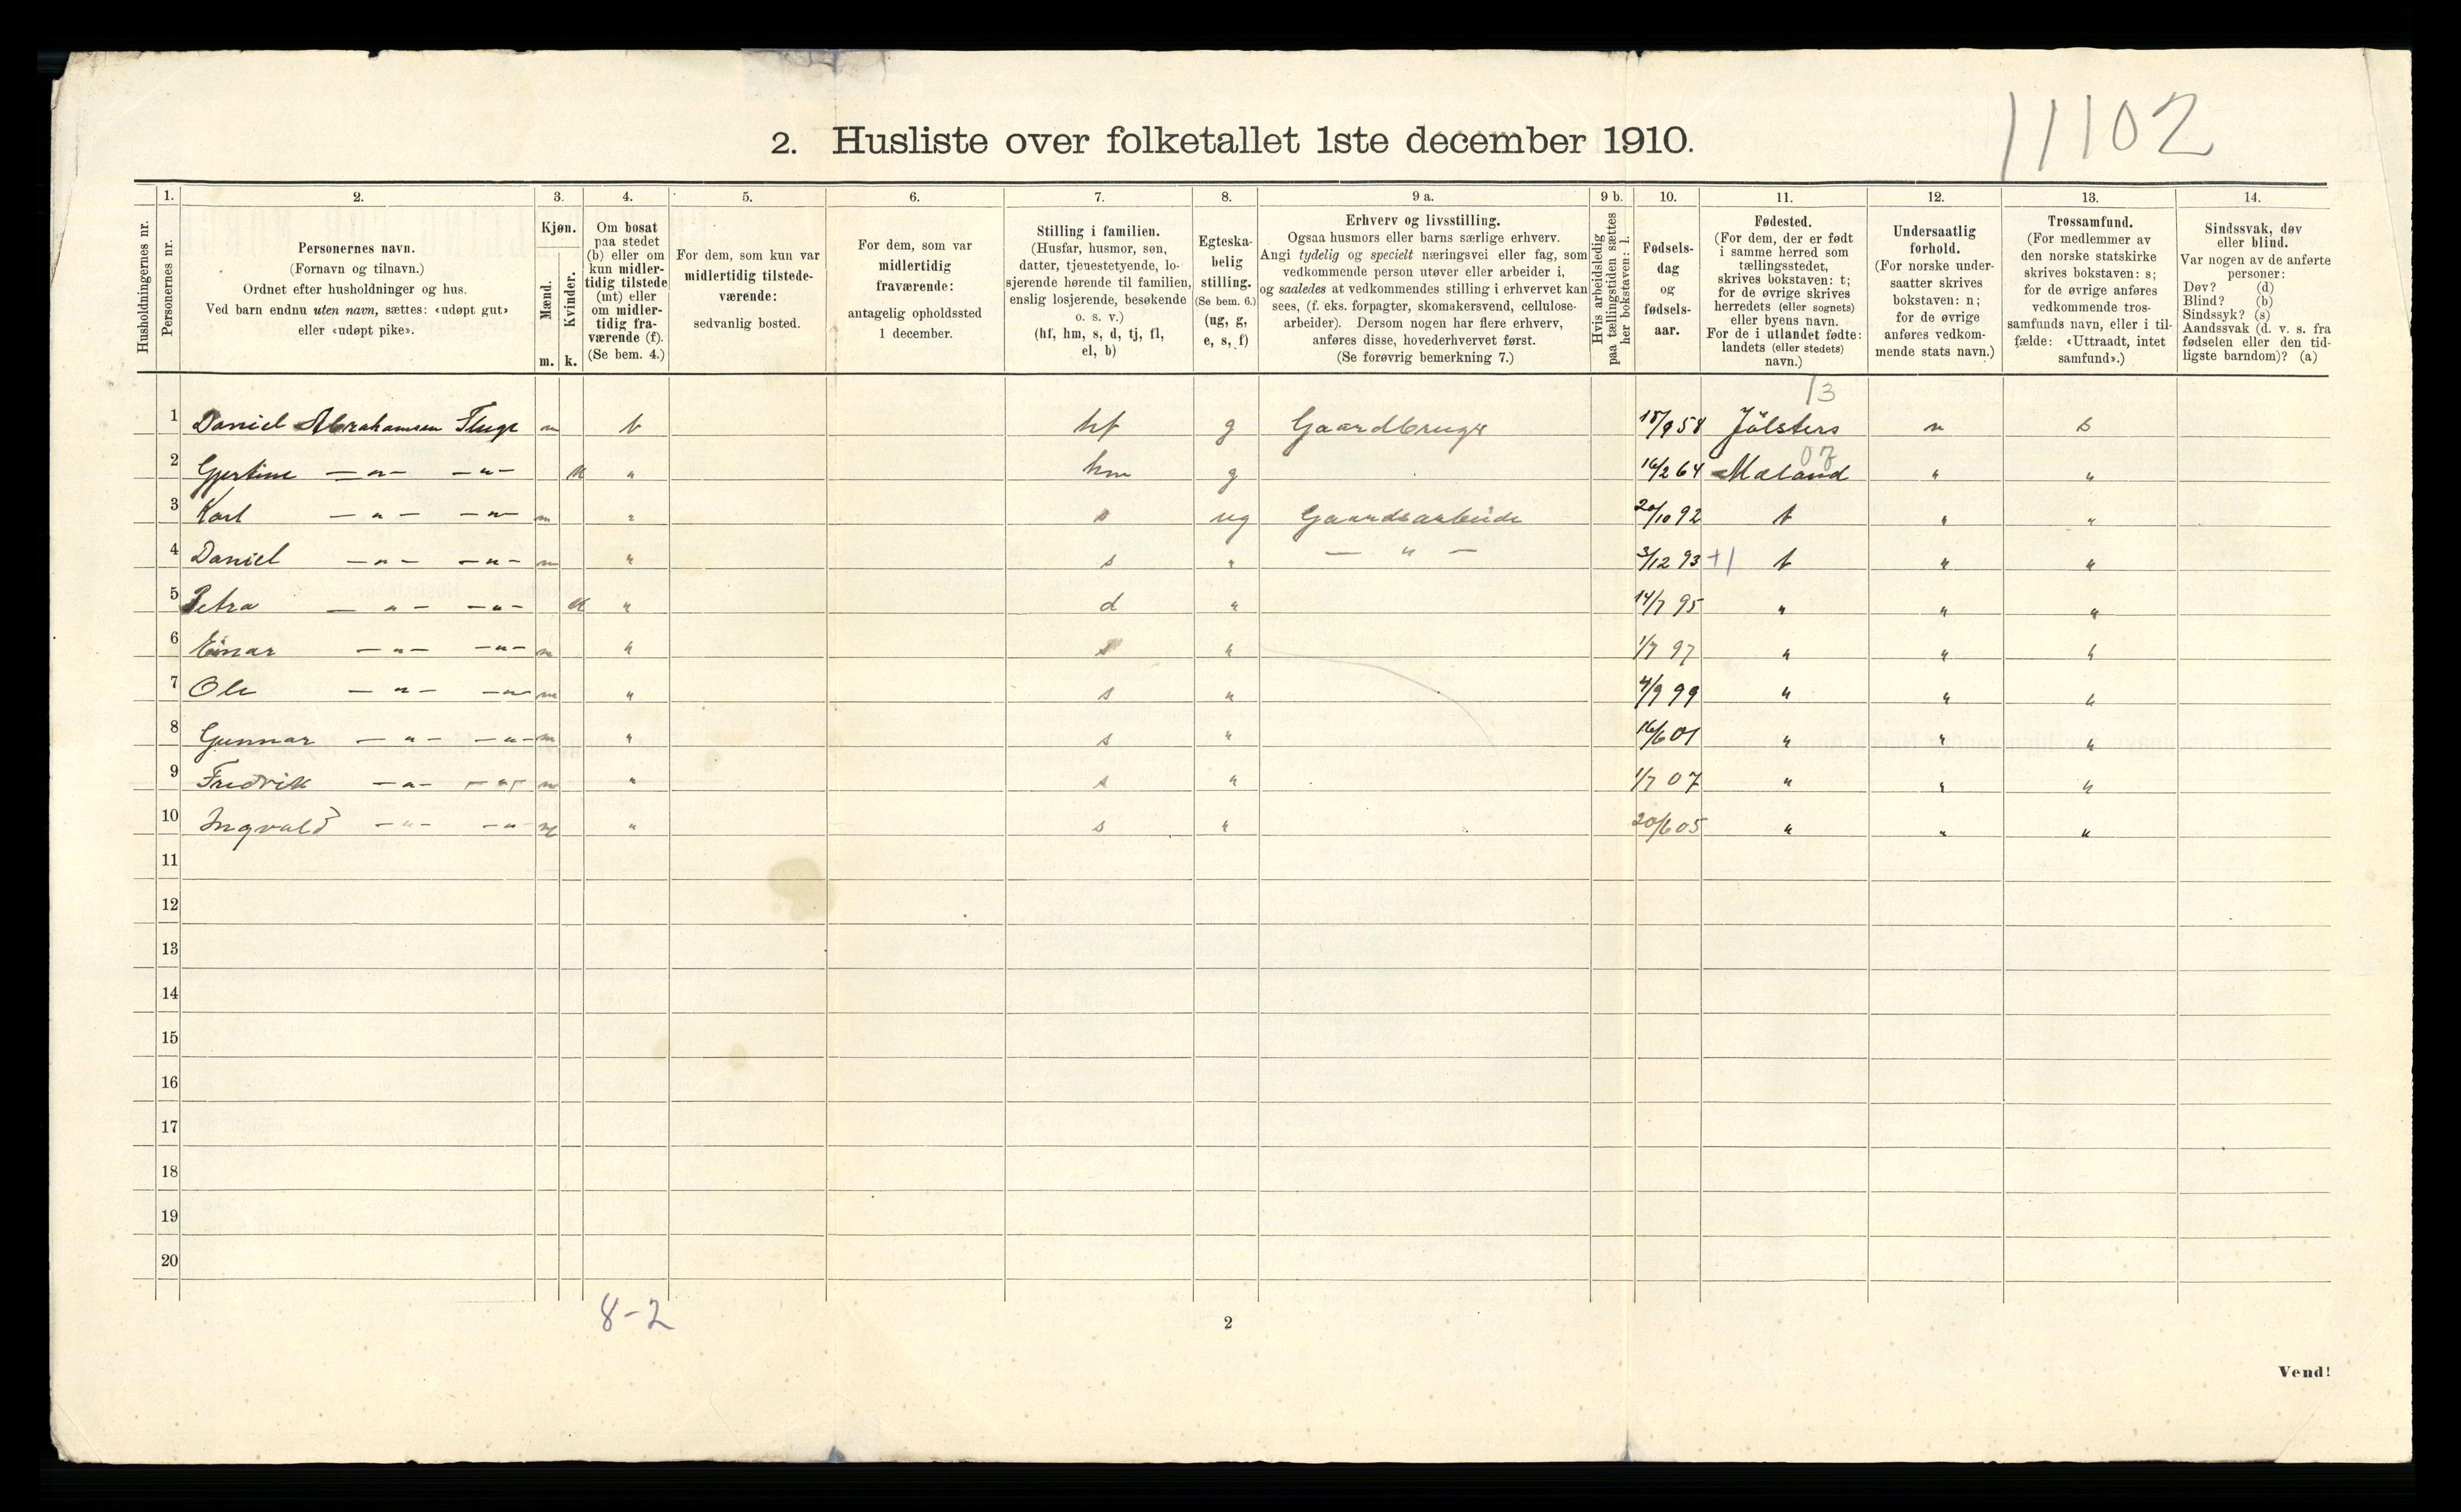 11102
2. Husliste over folketallet 1ste december 1910.
Husholdningernes nr.
1. Personernes nr.
2. Personernes navn. (Fornavn og tilnavn.) Ordnet efter husholdninger og hus. Ved barn endnu uten navn, sættes: «udøpt gut» eller «udøpt pike».
3. Kjøn. Mænd. m. Kvinder. k.
4. Om bosat paa stedet (b) eller om kun midler-tidig tilstede (mt) eller om midler-tidig fra-værende (f). (Se bem. 4.)
5. For dem, som kun var midlertidig tilstede-værende: sedvanlig bosted.
6. For dem, som var midlertidig fraværende: antagelig opholdssted 1 december.
7. Stilling i familien. (Husfar, husmor, søn, datter, tjenestetyende, lo-sjerende hørende til familien, enslig losjerende, besøkende o. s. v.) (hf, hm, s, d, tj, fl, el, b)
8. Egteska-belig stilling. (Se bem. 6.) (ug, g, e, s, f)
9 a. Erhverv og livsstilling. Ogsaa husmors eller barns særlige erhverv. Angi tydelig og specielt næringsvei eller fag, som vedkommende person utøver eller arbeider i, og saaledes at vedkommendes stilling i erhvervet kan sees, (f. eks. forpagter, skomakersvend, cellulose-arbeider). Dersom nogen har flere erhverv, anføres disse, hovederhvervet først. (Se forøvrig bemerkning 7.)
9 b. Hvis arbeidsledig paa tællingstiden sættes her bokstaven: l.
10. Fødsels-dag og fødsels-aar.
11. Fødested. (For dem, der er født i samme herred som tællingsstedet, skrives bokstaven: t; for de øvrige skrives herredets (eller sognets) eller byens navn. For de i utlandet fødte: landets (eller stedets) navn.)
12. Undersaatlig forhold. (For norske under-saatter skrives bokstaven: n; for de øvrige anføres vedkom-mende stats navn.)
13. Trossamfund. (For medlemmer av den norske statskirke skrives bokstaven: s; for de øvrige anføres vedkommende tros-samfunds navn, eller i til-fælde: «Uttraadt, intet samfund».)
14. Sindssvak, døv eller blind. Var nogen av de anførte personer: Døv? (d) Blind? (b) Sindssyk? (s) Aandssvak (d. v. s. fra fødselen eller den tid-ligste barndom)? (a)
13
1 Daniel Abrahamsen Fluge m b hf g Gaardbruger 18/9 58 Jölsters n s
07
2 Gjertine —"— —"— k " hm g 16/2 64 Mæland " "
3 Karl —"— —"— m " s ug Gaardsarbeide 20/10 92 t " "
4 Daniel —"— —"— m " s " —"— 3/12 93 +1 t " "
5 Petra —"— —"— k " d " 14/7 95 " " "
6 Einar —"— —"— m " s " 1/7 97 " " "
7 Ole —"— —"— m " s " 4/9 99 " " "
8 Gunnar —"— —"— m " s " 16/6 01 " " "
9 Fredrik —"— —"— m " s " 1/7 07 " " "
10 Ingvald —"— —"— m " s " 20/6 05 " " "
11
12
13
14
15
16
17
18
19
20
8-2
2
Vend!